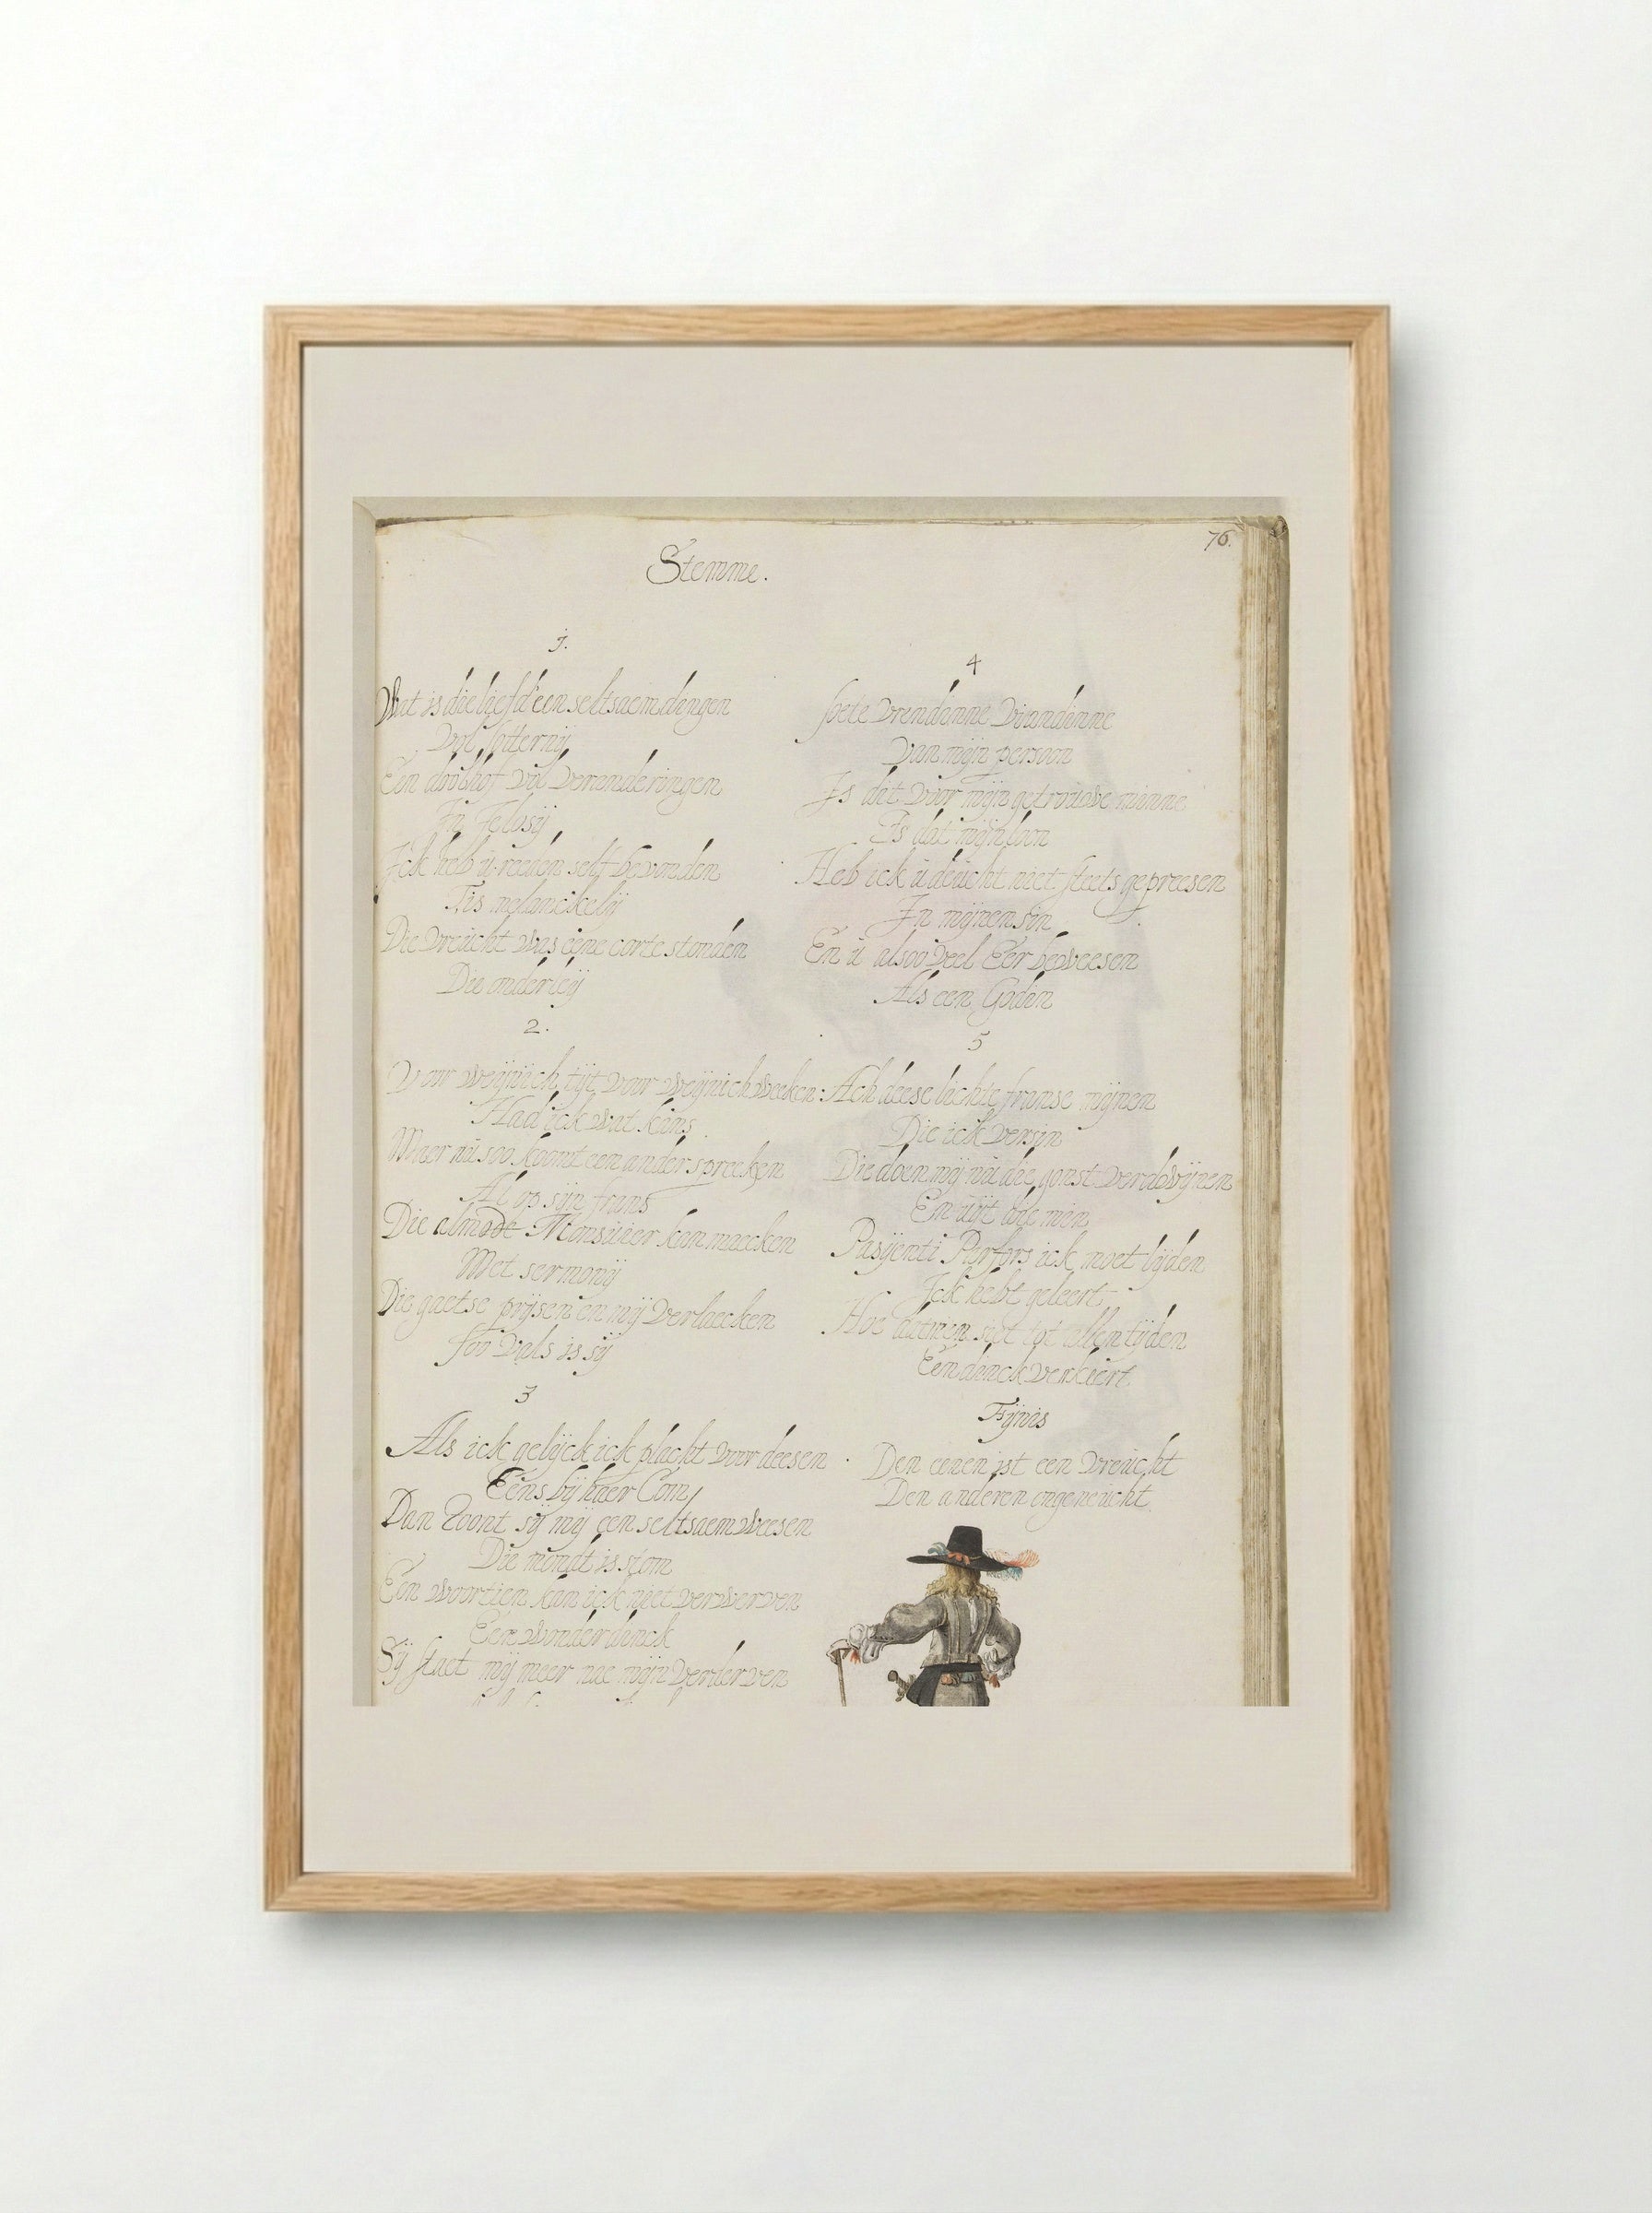 76.
Stemme.
1.
Wat is die liefd'een seltsaem dingen
Vol sotternij
Een doolhof vol veranderingen
In Jelosij
Ick heb u reeden self bevonden
Tis melanckelij
Die vreucht was eene corte stonden
Die onderleij
2.
Voor weijnich tijt voor weijnich weeken
Had ick wat kans
Maer nu soo koomt een ander spreeken
Al op sijn frans
Die almode Monsuier kan maecken
Met sermonij
Die gaetse prijsen en mij verlaecken
soo vals is sij
3
Als ick gelijck ick placht voor deesen
Eens bij haer Com
Dan toont sij mij een seltsaem weesen
Die mondt is stom
Een woortien kan ick niet verwerven
Een wonder dinck
Sij staet mij meer nae mijn verderven
4
soete vrindinne viandinne
Van mijn persoon
Is dit voor mijn getrouwe minne
Is dat mijn loon
Heb ick u deucht niet staets gepreesen
In mijnen sin
En u alsoo veel Eer beweesen
Als een Godin
5
Ach deese lichte franse mijnen
Die ick versin
Die doen mij nu die gonst verdwijnen
En uijt die min
Pasijenti Parfors ick moet lijden
Ick hebt geleert
Hoe datmen siet tot allen tijden
Een dinck verkeert
Fijnis
Den eenen ist een vreucht
Den anderen ongeneucht